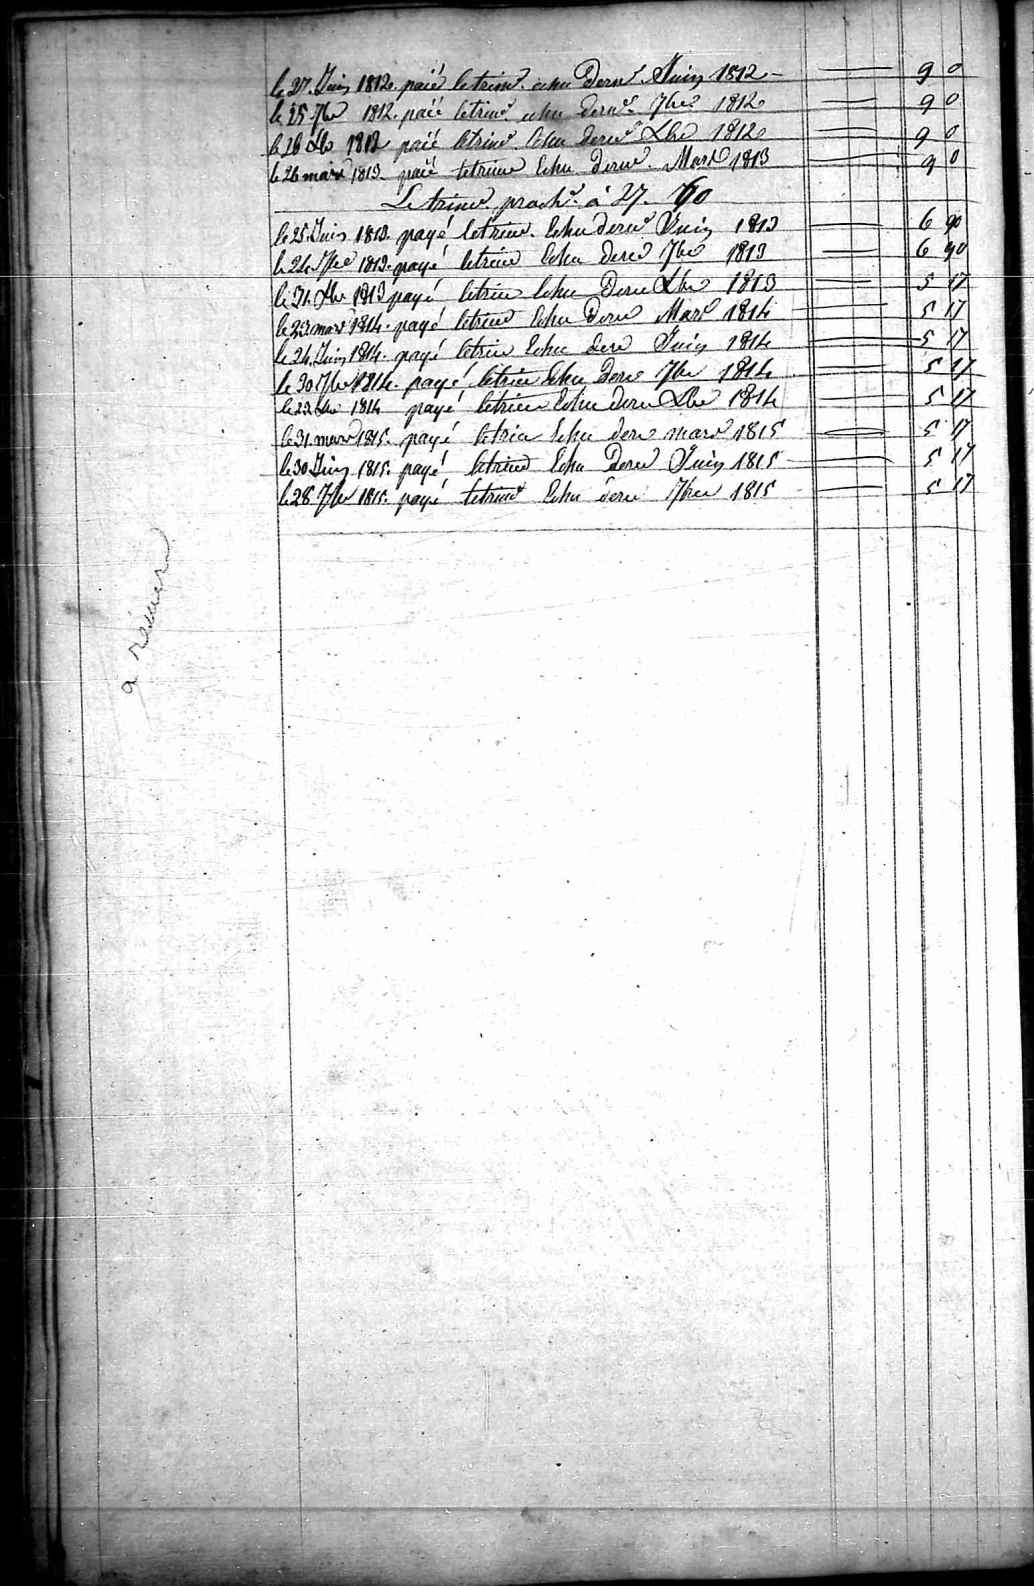 le 27. Juin 1812. paié le trim.e échu dern.r Juin 1812 - 9 0
le 25 7bre 1812. paié le trim.e échu dern.r 7bre 1812 9 0
le 26 Xbre 1812 paié le trim.e Echu dern.r Xbre 1812 9 0
le 26 mars 1813. paié le trim.e Echu dern.r Mars 1813 9 0
Le trim.e proch.n à 27. 60
le 25. Juin 1813. payé le trim.e Echu dern.r Juin 1813 6 90
le 24. 7bre 1813. payé le trim.e Echu dern.r 7bre 1813 6 90
le 31. Xbre 1813 payé le trim.e Echu dern.r Xbre 1813 5 17
le 23 mars 1814. payé le trim.e Echu dern.r Mars 1814 5 17
le 24. Juin 1814. payé le trim.e Echu dern.r Juin 1814 5 17
le 30 7bre 1814. payé le trim.e Echu dern.r 7bre 1814 5 17
le 23. Xbre 1814 payé le trim.e Echu dern.r Xbre 1814 5 17
le 31. mars 1815. payé le trim.e Echu dern.r mars 1815 5 17
le 30 Juin 1815. payé le trim.e Echu dern.r Juin 1815 5 17
le 28 7bre 1815. payé le trim.e Echu dern.r 7bre 1815 5 17